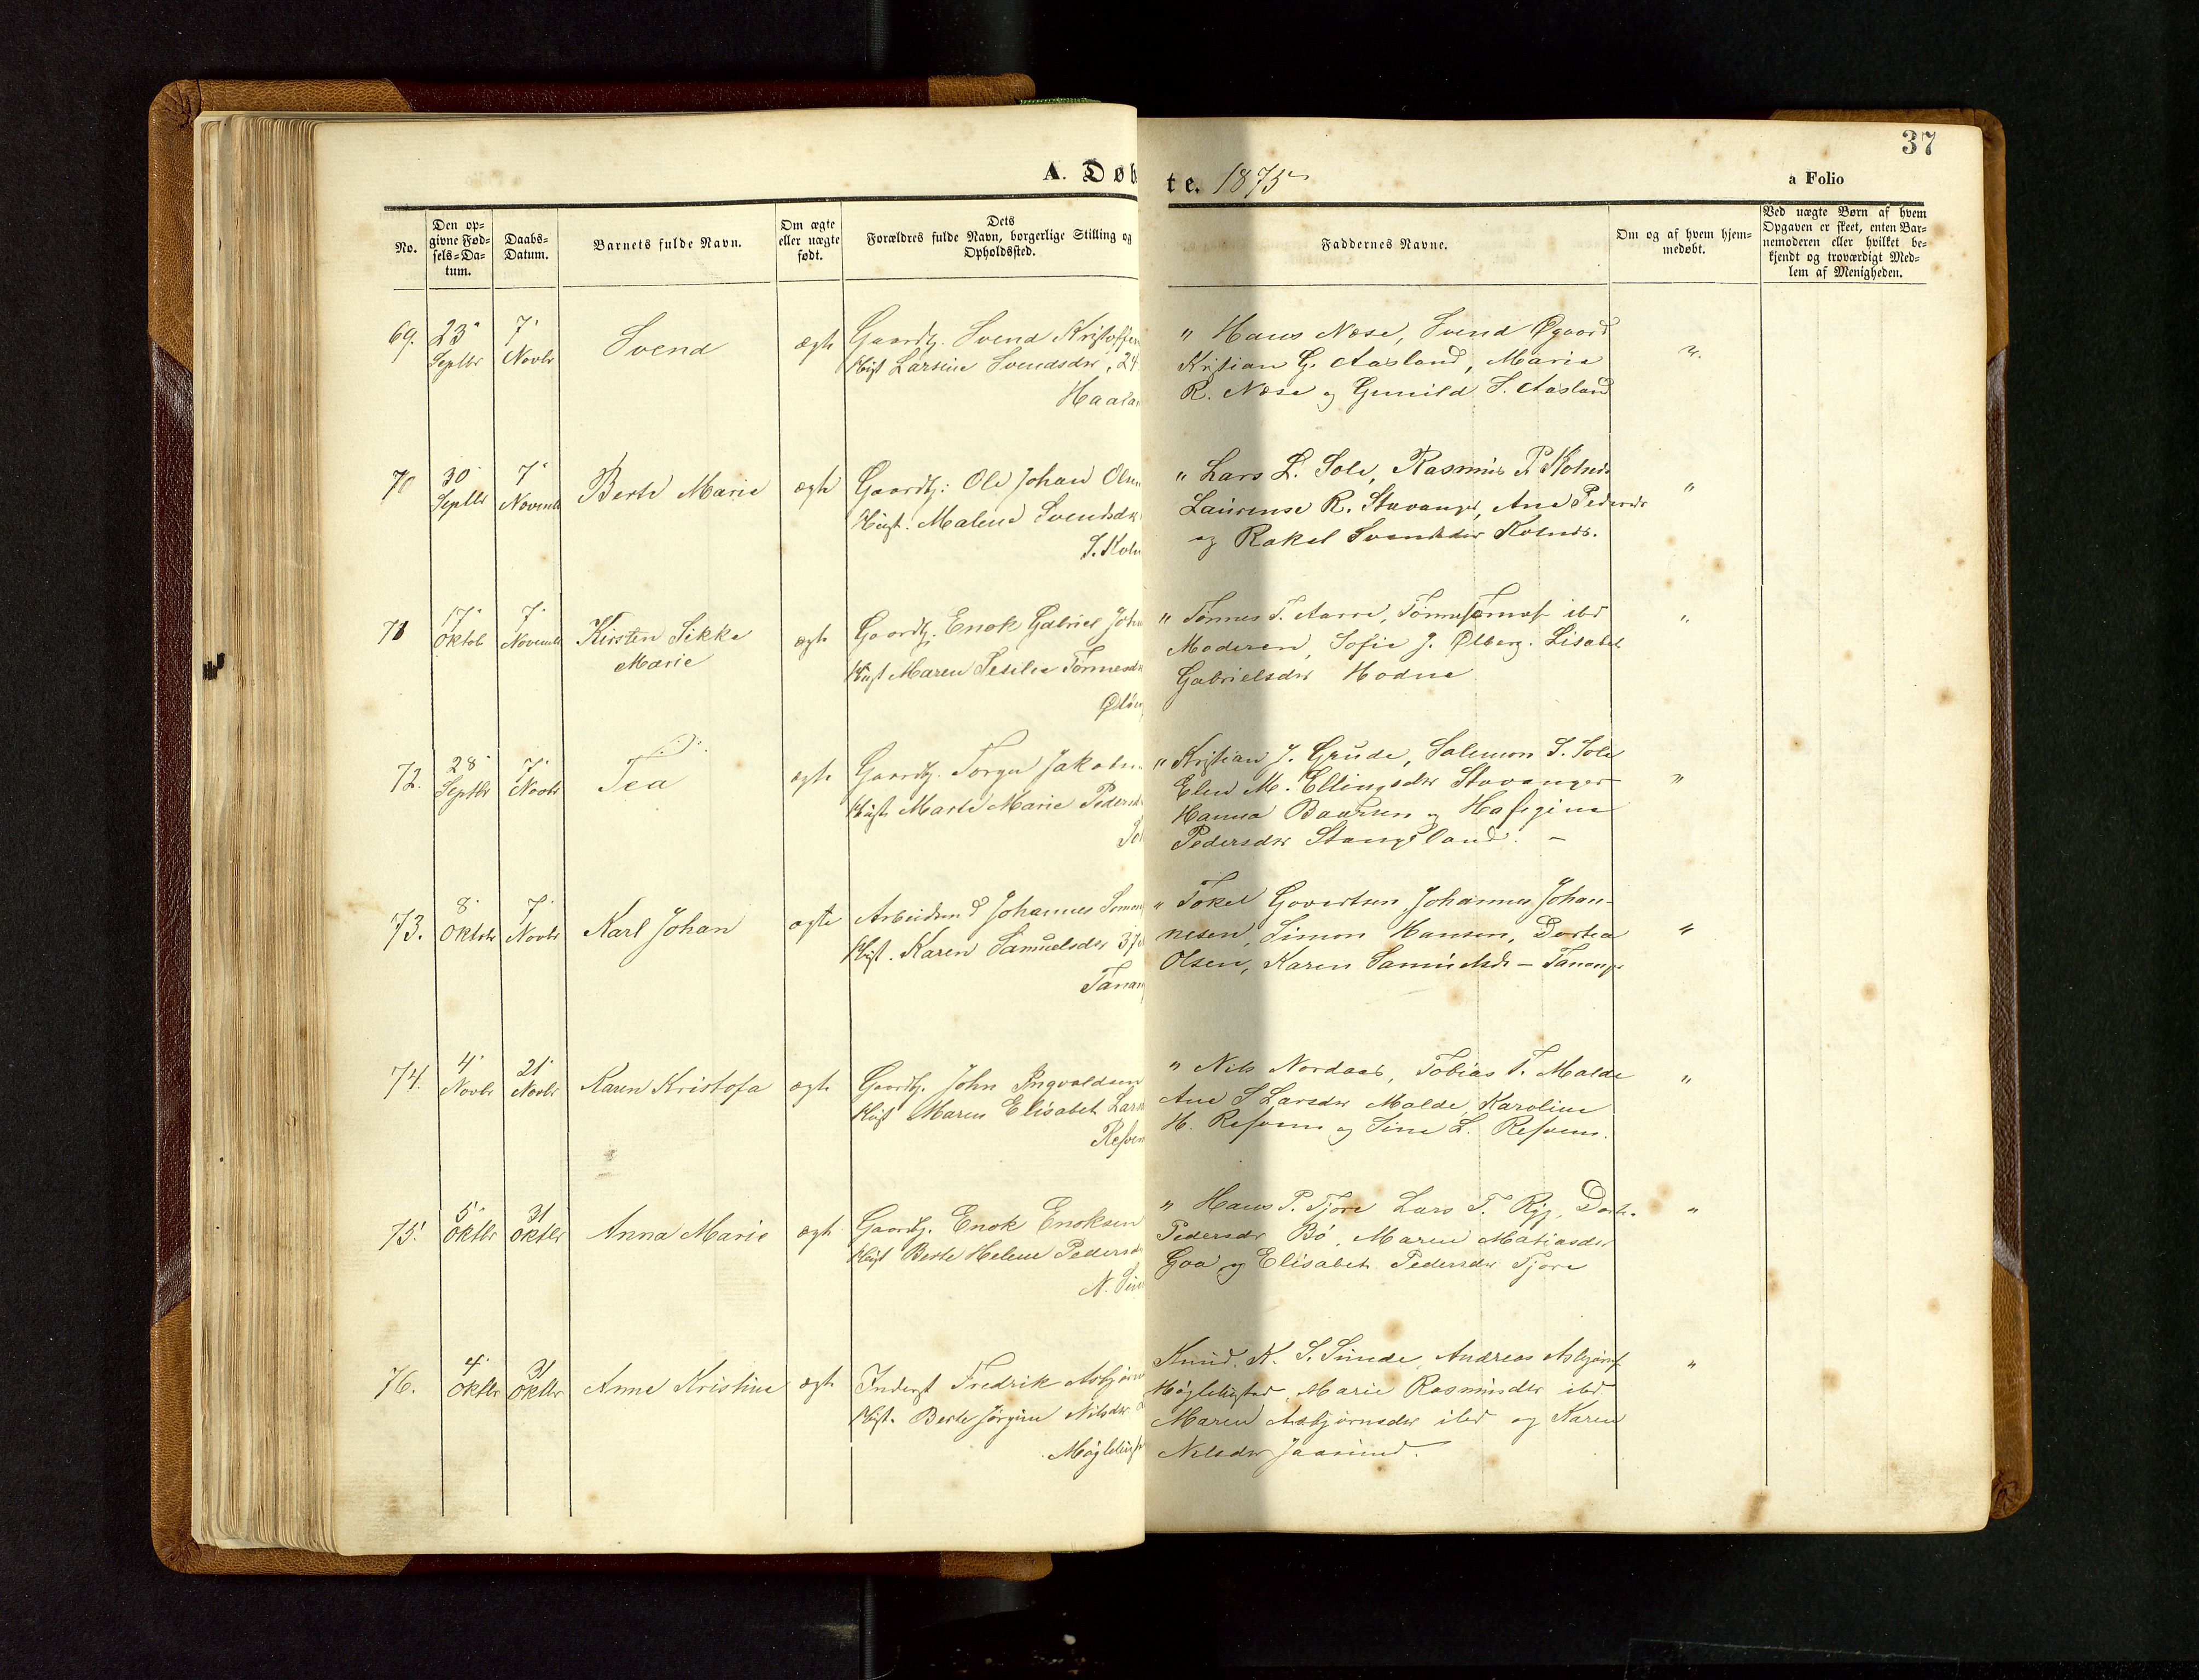 37
A. Døb
te. 1875
a Folio
No.
Den op-
givne Fød-
sels-Da-
tum.
Daabs-
Datum.
Barnets fulde Navn.
Om ægte
eller uægte
født.
Dets
Forældres fulde Navn, borgerlige Stilling og
Opholdssted.
Faddernes Navne.
Om og af hvem hjem-
medøbt.
Ved uægte Børn af hvem
Opgaven er skeet, enten Bar-
nemoderen eller hvilket be-
kjendt og troværdigt Med-
lem af Menigheden.
69. 23 Septbr 7 Novbr Svend ægte
Gaardbr. Svend Kristoffer
Hust Larsine Svendsdr, 24
Haala
" Hans Næse, Svend Øgaard
Kristian G. Aasland, Marie
R. Næse og Gunild S. Aasland
70 30 Septbr 7 Novemb Berte Marie ægte
Gaardbr: Ole Johan Olsen
Hust. Malene Svendsdr
S. Koln
" Lars L. Sole, Rasmus P. Kolnes
Laurense R. Stavanger, Ane Pedersdr
og Rakel Svendsdr Kolnes.
71 17 Oktob 7 Novemb Kirsten Sikke
Marie
ægte
Gaardbr. Enok Gabriel Joh
Hust Maren Tønnesdr
" Tønnes T. Aarre, ibd
Moderen, Sofie J. Ølberg. Lisabet
Gabrielsdr Hodne
72. 28 Septbr 7 Novbr Tea ægte
Gaardbr. Torger Jakobs
Hust Marte Marie Pedersd
Sol
" Kristian J. Grude, Salemon S. Sole
Elen M. Ellingsdr Stavanger
Hanna Baarsen og
Pedersdr Stangeland. —
73. 8 Oktobr 7 Novbr Karl Johan ægte
Arbeidsmd Johannes
Hust. Karen Samuelsdr 37
Tanan
" Tokel Govertsen, Johannes Johan-
nesen, Simon Hansen, Dortea
Olsen, Karen Samuelsdr — Tanang
74. 4 Novbr 21 Novbr Karen Kristofa ægte
Gaardbr. John Ingvaldsen
Hust Maren Elisabet Lars
Refsn
" Nils Nordaas, Tobias T. Malde
Ane S Larsdr Malde, Karoline
H. Refsnes og Sine L. Refsnes.
75. 5 Oktbr 31 Oktbr Anna Marie ægte
Gaardbr. Enok Enoksen
Hust Berte Helene Pedersd
" Hans P. Tjore Lars T. Ryg, Dorte
Pedersdr Bø, Maren Matiasdr
Goa og Elisabet Pedersdr Tjore
76. 4 Oktbr 31 Oktbr Anne Kristine ægte
Inderst Fredrik Asbjørn
Hust. Berte Jørgine Nilsdr
Møglebust
Knud K. S. Sunde, Andreas Asbjørns
Møglebustad, Marie Rasmusdr ibd
Maren Asbjørnsdr ibd og Karen
Nilsdr Jaasund.